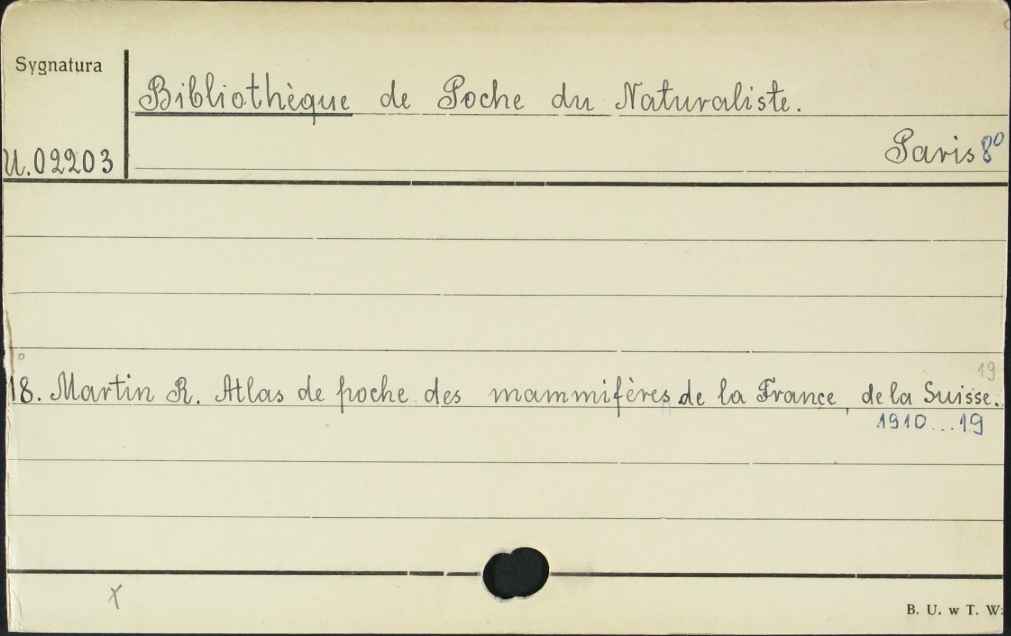 Sygnatura
Bibliothèque de Poche du Naturaliste.
U.02203
Paris 8°
19
18. Martin R. Atlas de poche des mammifères de la France, de la Suisse.
1910...19
x
B. U. w T. W.